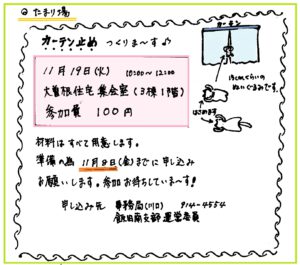 @ たまり場
カーテン止め つくりま〜す♪
カーテン
11月19日(水) 10:00〜12:00
大曽根住宅 集会室(3棟1階)
参加費 100円
15cmぐらいの
ぬいぐるみです。
はさめます
材料はすべて用意します。
準備の為 11月8日(金)までに申し込み
お願いします。参加お待ちしていま〜す!
申し込み先 事務局(川口) 914-4554
飯田南支部 運営委員